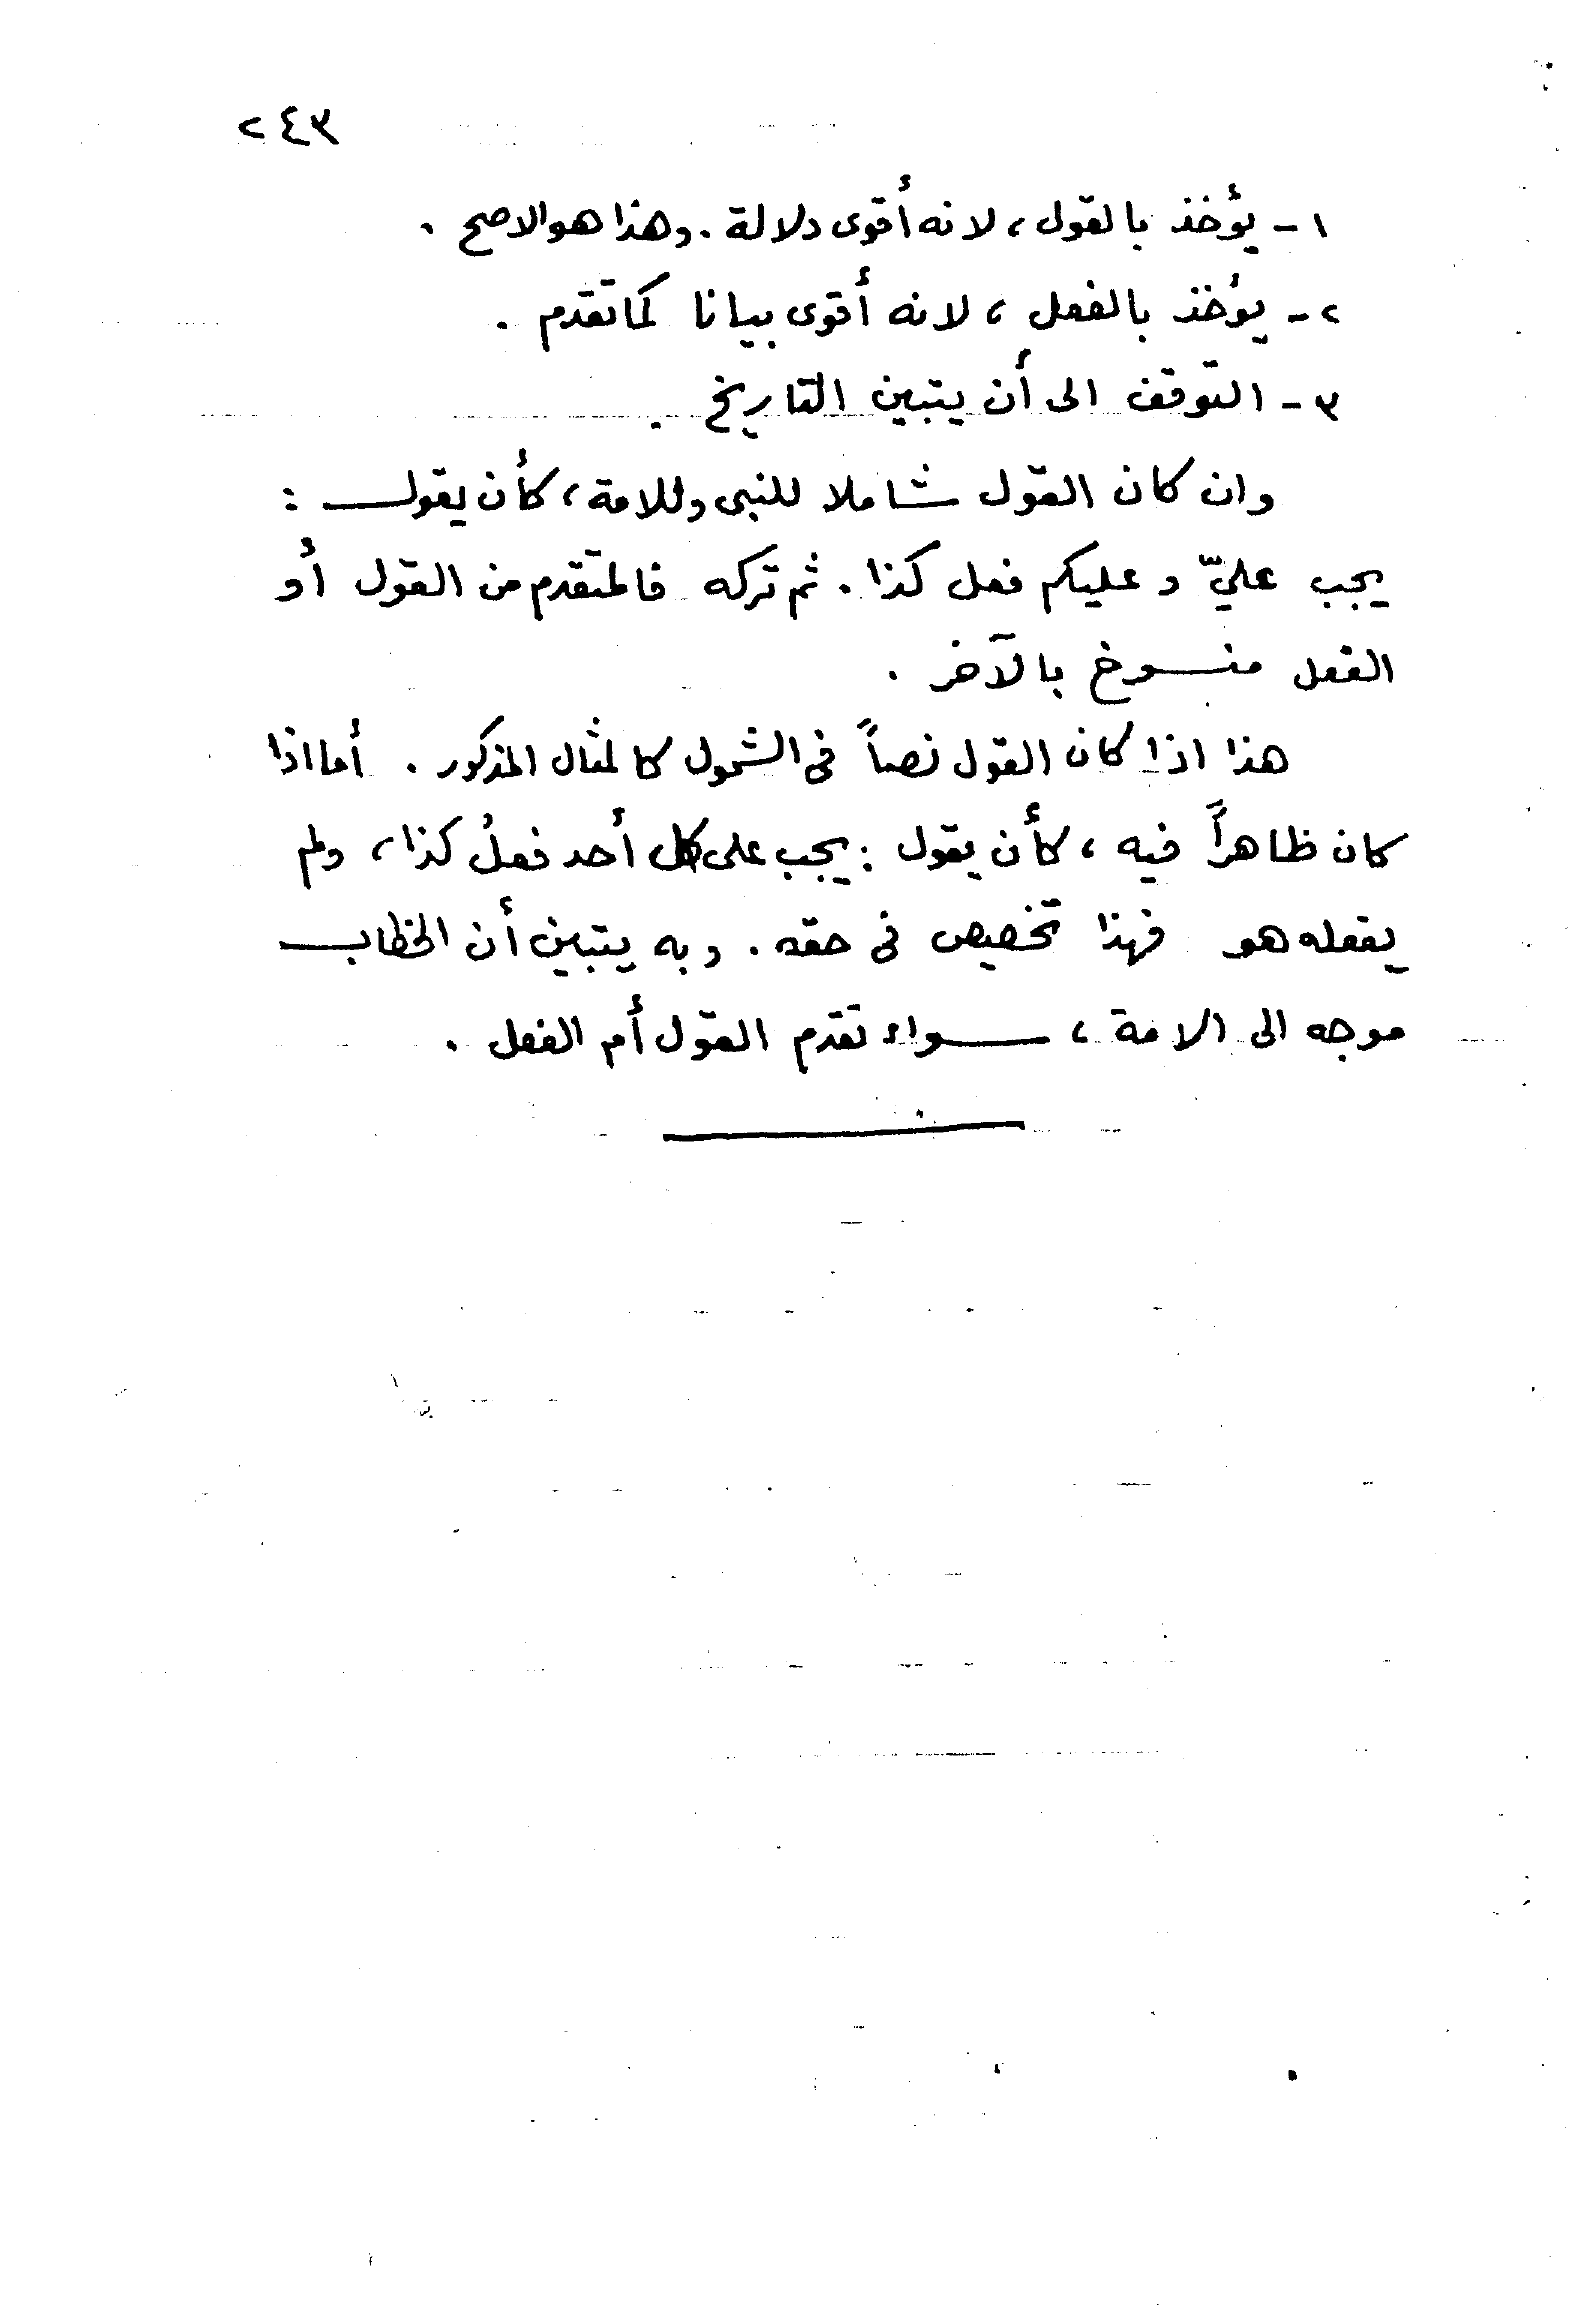 ٢٤٣
١ - يؤخذ بالقول ، لانه أقوى دلالة . وهذا هو الاصح .
٢ - يؤخذ بالفعل ، لانه أقوى بيانا كما تقدم .
٣ - التوقف الى أن يتبين التاريخ .
وان كان القول شاملا للنبى وللامة ، كأن يقول :
يجب عليّ وعليكم فعل كذا . ثم تركه فالمتقدم من القول أو
الفعل منسوخ بالآخر .
هذا اذا كان القول نصاً فى الشمول كالمثال المذكور . أما اذا
كان ظاهراً فيه ، كأن يقول : يجب على كل أحد فعلُ كذا ، ولم
يفعله هو فهذا تخصيص فى حقه . وبه يتبين أن الخطاب
موجه الى الامة ، سواء تقدم القول أم الفعل .